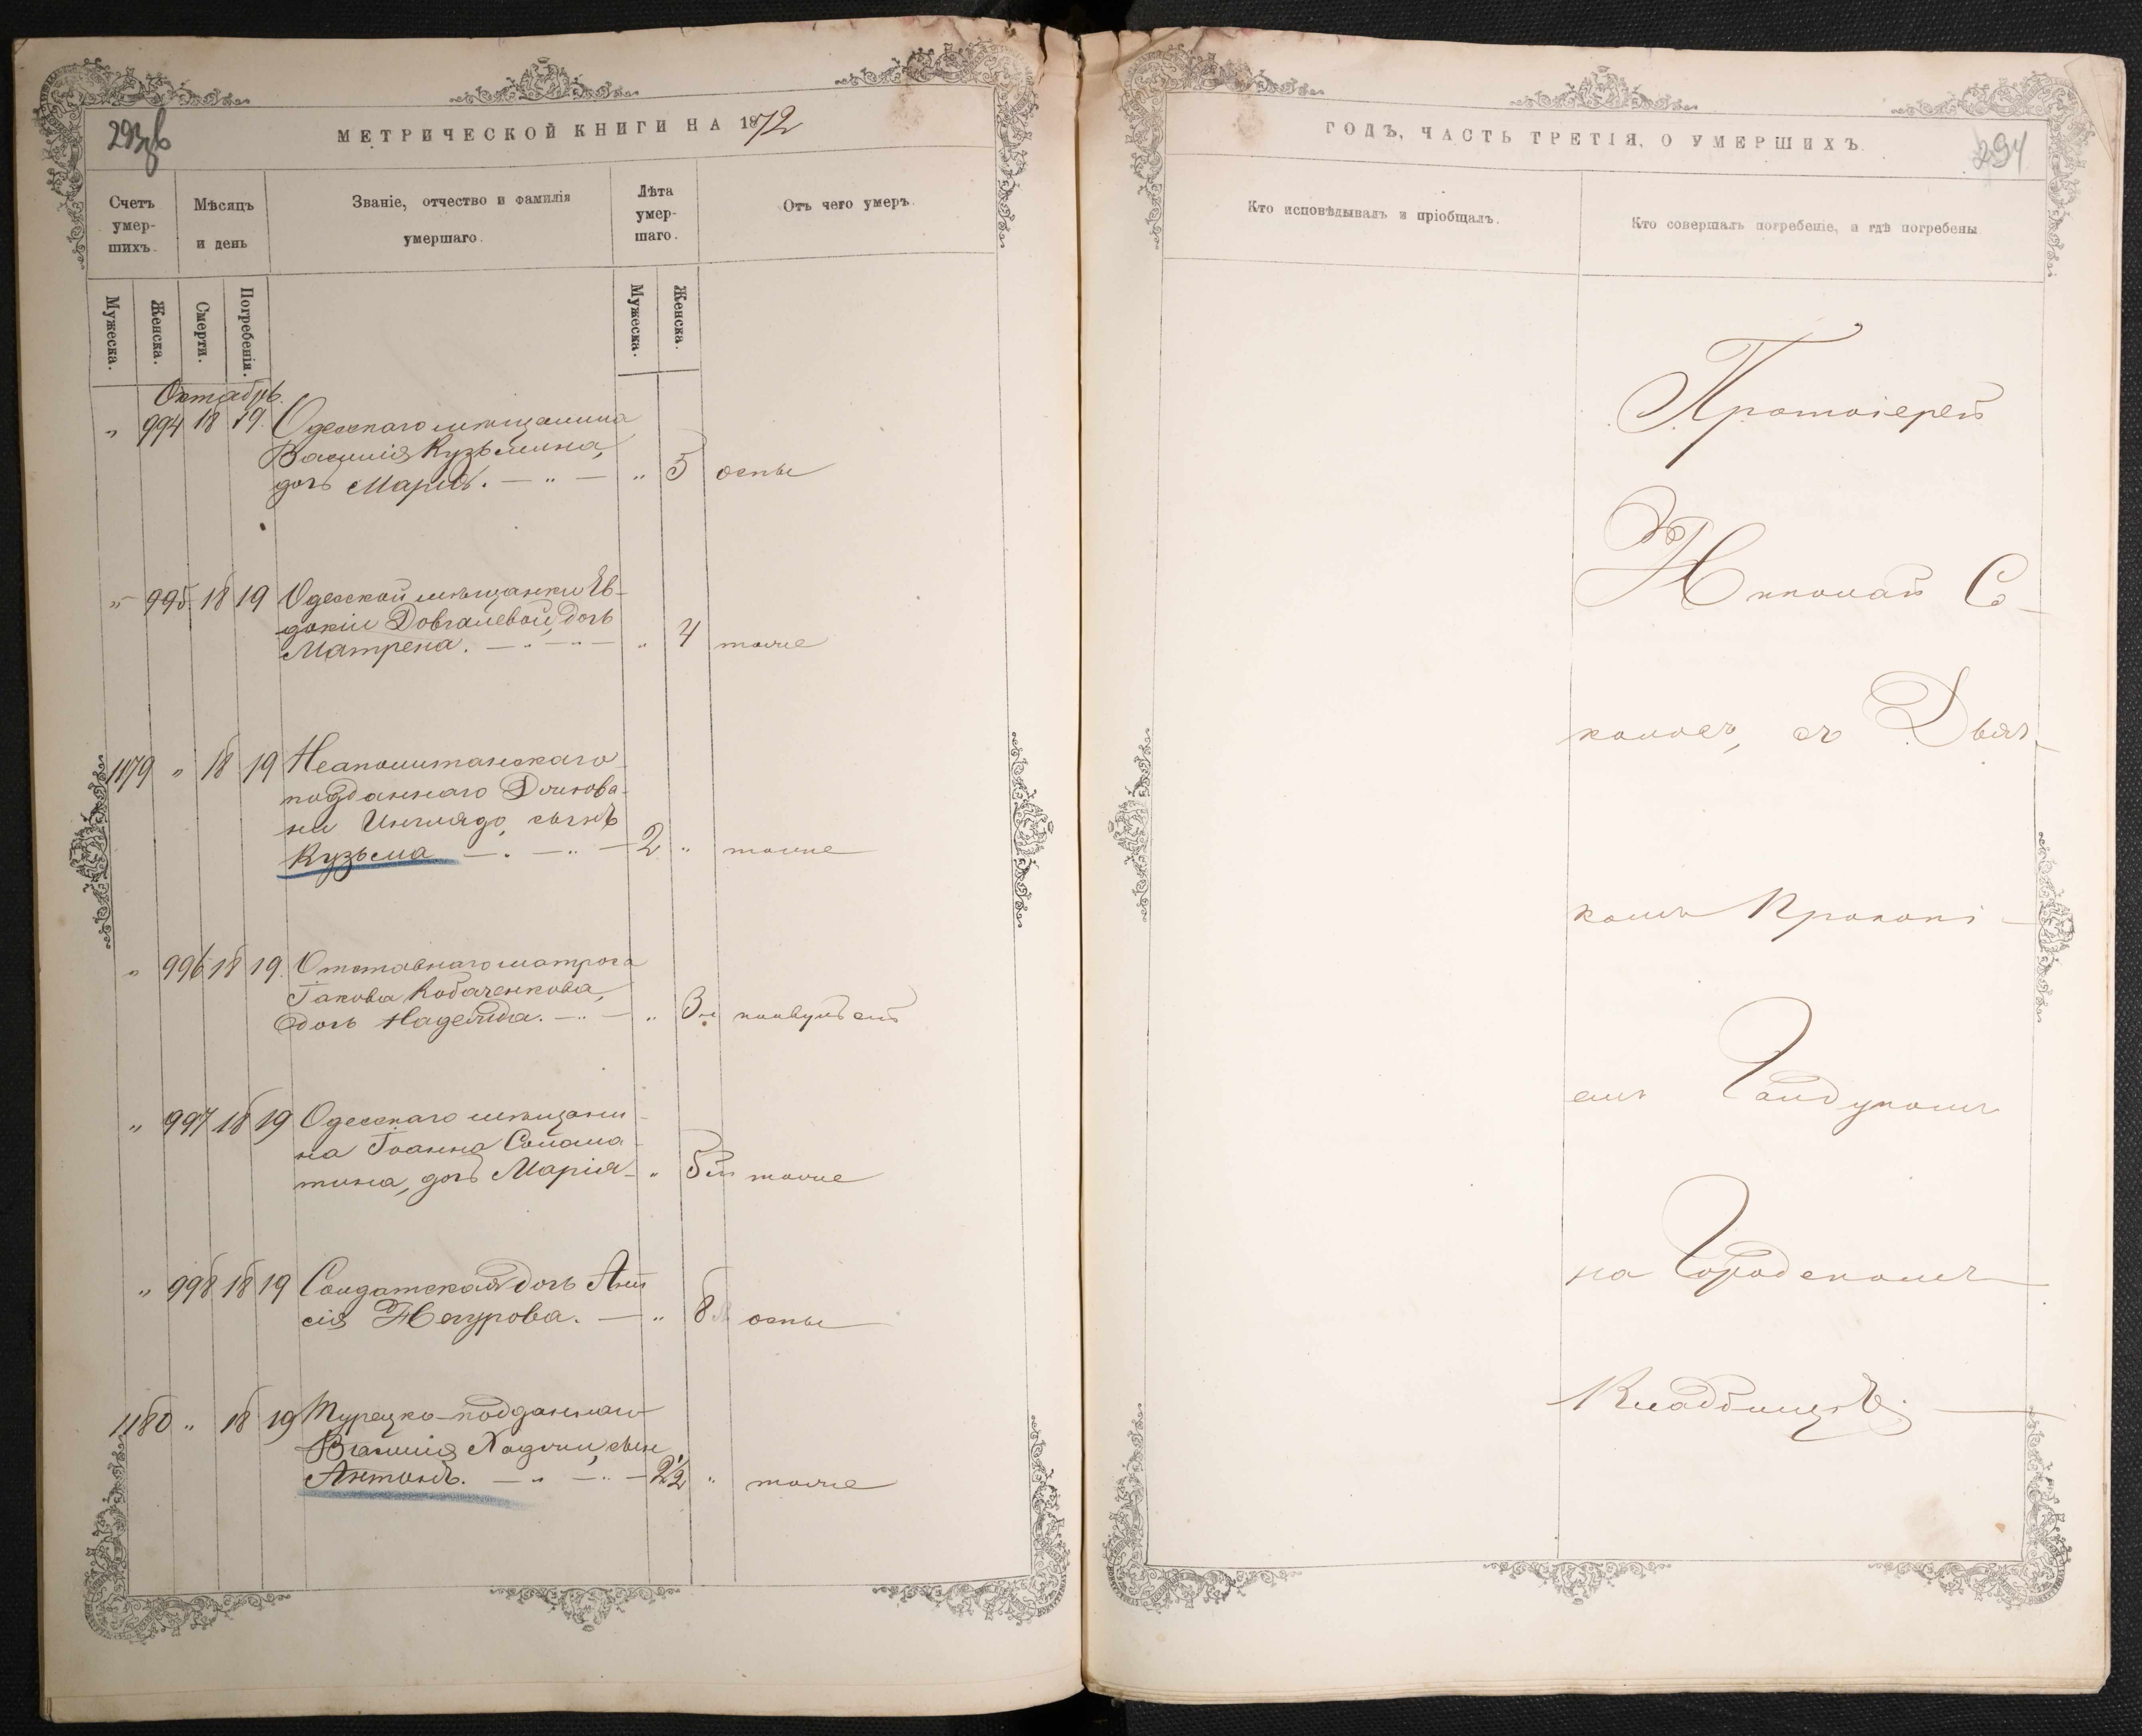 293об
МЕТРИЧЕСКОЙ КНИГИ НА 1872
Счетъ умер-шихъ.
Мѣсяцъ и день
Званіе, отчество и фамилія умершаго.
Лѣта умер-шаго.
Отъ чего умеръ.
Мужеска.
Женска.
Смерти.
Погребенія.
Мужеска.
Женска.
Октябрь.
„ 994 18 19. Одесскаго мѣщанина
Василія Кузьмина,
дочь Марія. — „ — „ 5 оспы
„ 995. 18 19 Одесской мѣщанки Ев-
докіи Довгалевой, дочь
Матрена. — „ — „ — „ 4 тоже
1179 „ 18 19 Неаполитанскаго
подданнаго Джіова-
ни сынъ
Кузьма — „ — „ — 2 „ тоже
„ 996 18 19. Отставнаго матроса
Іакова Кобаченкова,
дочь Надежда. — „ — „ 3м
„ 997 18 19 Одесскаго мѣщани-
на Іоанна Солома-
тина, дочь Марія — „ 5м тоже
„ 998 18 19 Солдатская дочь Ани-
сія — „ 8 оспы
1180 „ 18 19 Турецко-подданнаго
Василія сын
Антонъ. — „ — „ — 2½ „ тоже
ГОДЪ, ЧАСТЬ ТРЕТІЯ, О УМЕРШИХЪ.
294
Кто исповѣдывалъ и пріобщалъ.
Кто совершалъ погребеніе, и гдѣ погребены
Протоіерей
Николай Со-
коловъ, съ Дьяч-
комъ Прокопі-
емъ Гайдукомъ
на Городскомъ
Кладбищѣ. —